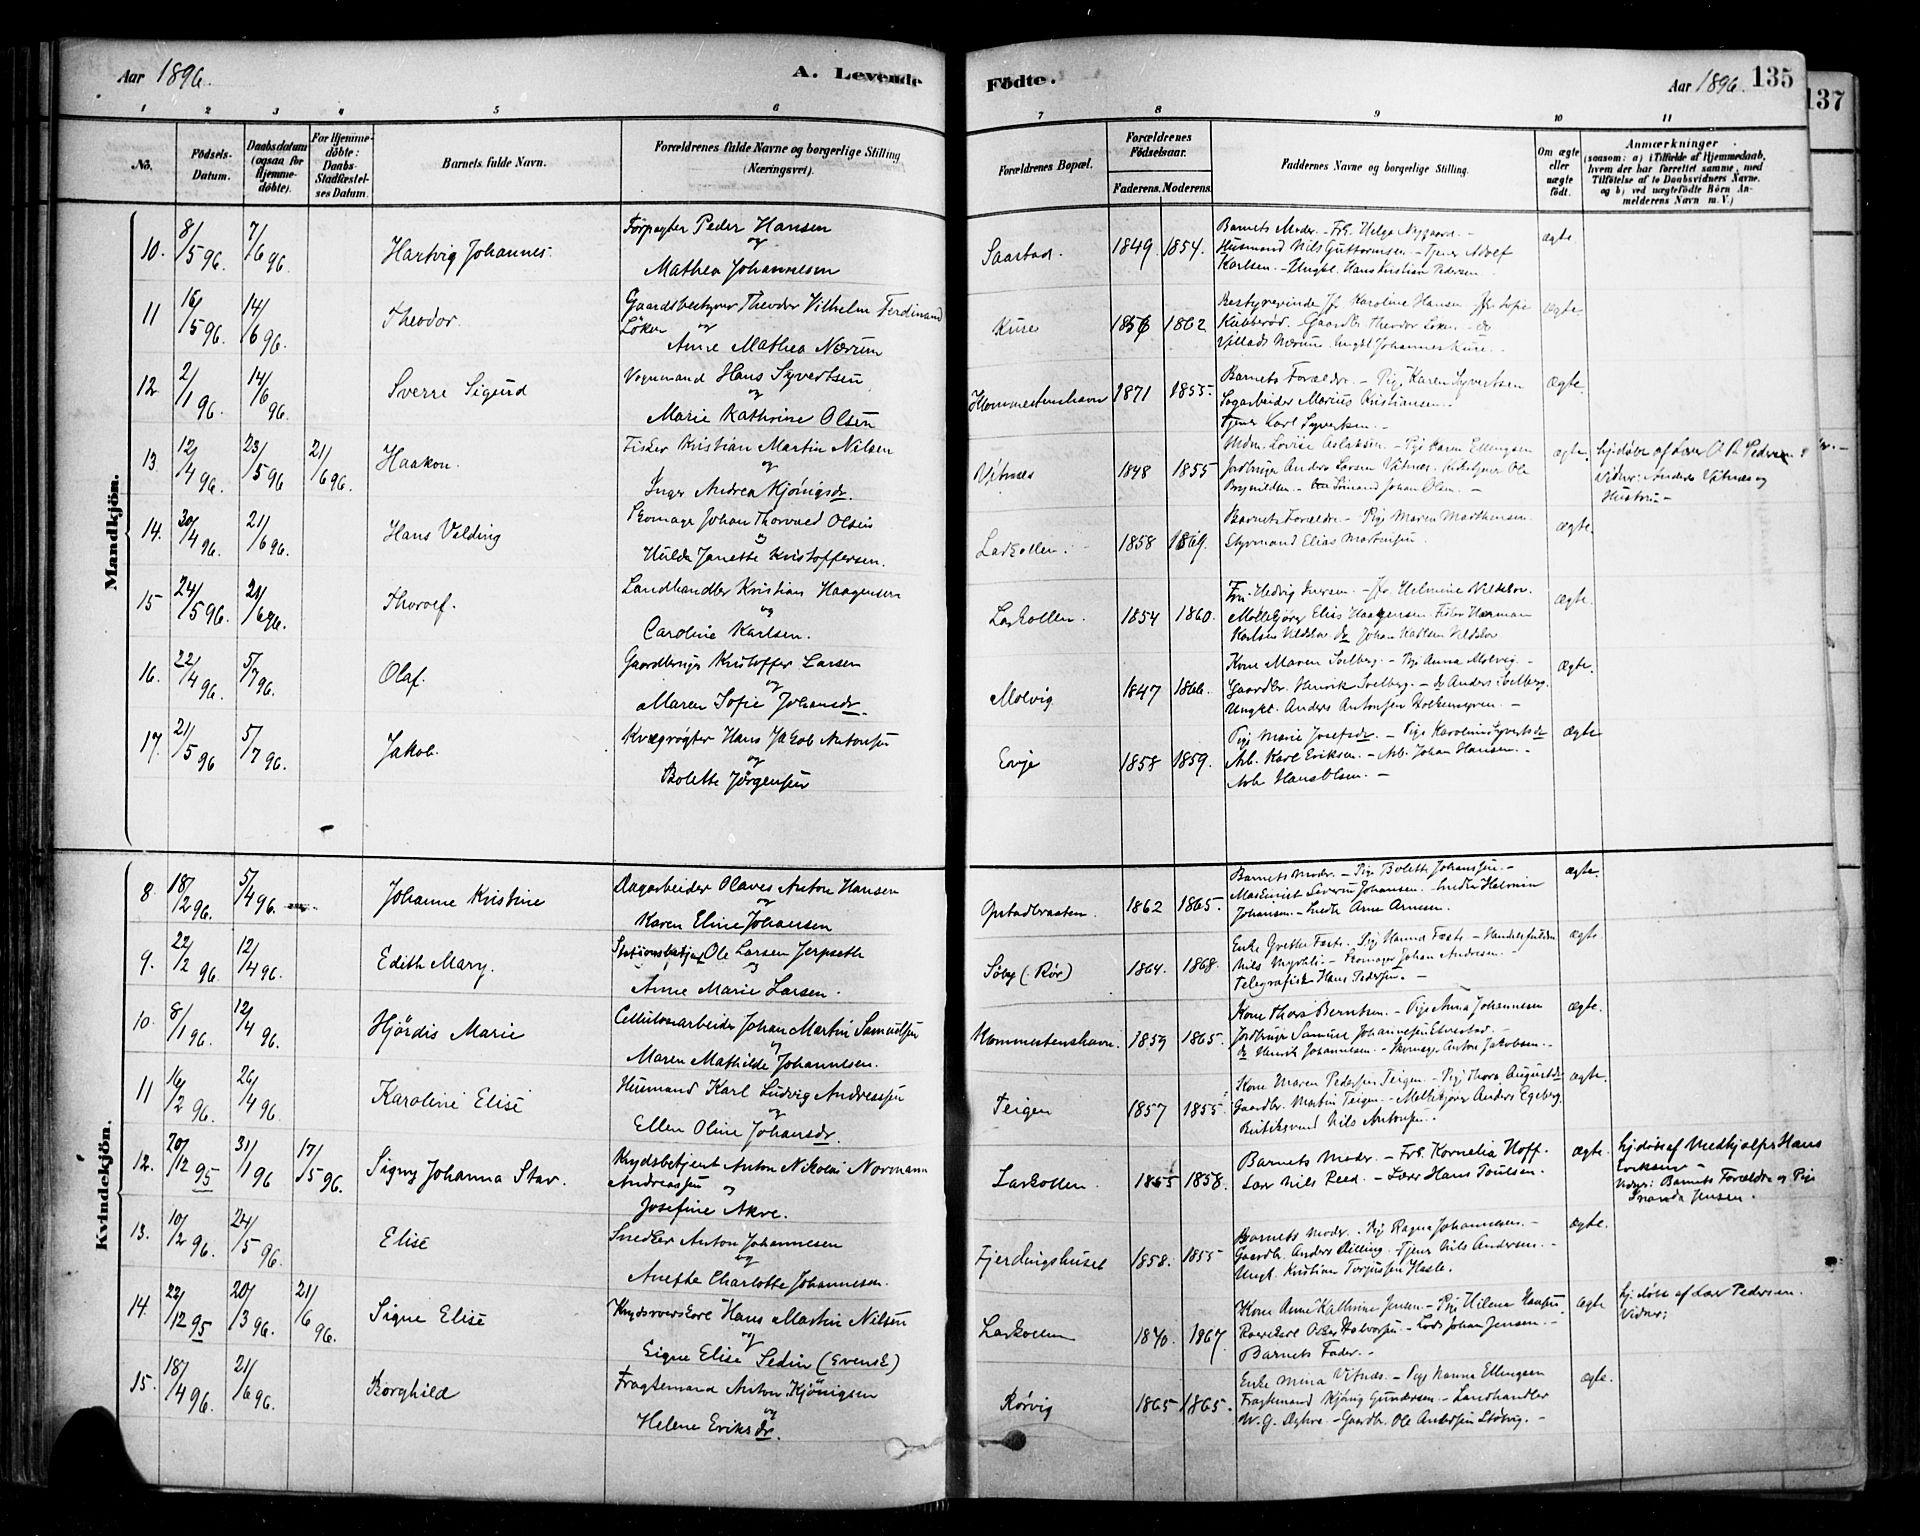 Aar 1896.
A. Levende
Födte.
Aar 1896.
135
137
1 2 3 4 5 6 7 8 9 10 11
No.
Födsels-Datum.
Daabsdatum (ogsaa for Hjemmedöbte).
For Hjemmedöbte: Daabs-Stadfæstelses Datum.
Barnets fulde Navn.
Forældrenes fulde Navne og borgerlige Stilling (Næringsvei).
Forældrenes Bopæl.
Forældrenes Födselsaar.
Faderens. Moderens.
Faddernes Navne og borgerlige Stilling.
Om ægte eller uægte födt.
Anmærkninger
(saasom: a) i Tilfælde af Hjemmedaab, hvem der har forrettet samme, med Tilföielse af to Daabsvidners Navne. og b) ved uægtefödte Börn Anmelderens Navn m. V.)
Mandkjön.
10. 8/5 96. 7/6 96. Hartvig Johannes. Forpagter Peder Hansen
og
Mathea Johannesen
Saastad. 1849 1854. Barnets Moder. – Frk. Helga Nygaard. –
Husmand Nils Guttormsen – Tjener Adolf
Karlsen. – Ungkl. Hans Kristian Pedersen
ægte
11 16/5 96. 14/6 96. Theodor. Gaardsbestyrer Theodor Vilhelm Ferdinand
Løken og
Anne Mathea Nærum
Kure 1856 1862 Bestyrerinde Jf. Karoline Hansen – Jfr Sofie
Kubberød. – Gaardbr. Theodor Løken – do
Villads Nærum. Ungkl Johannes Kure. –
ægte
12 2/1 96. 14/6 96. Sverre Sigurd Vognmand Hans Syvertsen
og
Marie Kathrine Olsen
Kommestenshavn 1871 1855. Barnets Forældre. – Pige Karen Syvertsen
Sagarbeider Marius Kristiansen.
Tjener Karl Syvertsen. –
ægte.
13. 12/4 96. 23/5 96 21/6 96. Haakon. Fisker Kristian Martin Nilsen
og
Inger Andrea Kjönigsdr.
Vitnes 1848 1855 Mdm. Lovise Aslaksen – Pige Karen Ellingsen
Jordbruger Anders Larsen Vitnæs. Ole
Brynildsen – Sömand Johan Olsen. –
ægte. Hj.döbt af Lærer O. A. Pedersen
Vidner: Anders Vitnæs og
Hustru –
14. 30/4 96. 21/6 96. Hans Velding Skomager Johan Thorvald Olsen
og
Hulda Janette Kristoffersen.
Larkollen. 1858 1869. Barnets Forældre – Pige Maren Marthinsen.
Styrmand Elias Martinsen
ægte.
15 24/5 96. 21/6 96. Thorolf. Landhandler Kristian Haagensen
og
Caroline Karlsen.
Larkollen. 1854 1860. Fru Hedvig Iversen. – Jfr. Helmine
Møllebyger Elias Haagensen. Fisker Herman
Karlsen do Johan Karlsen
ægte.
16. 22/4 96. 5/7 96. Olaf. Gaardbruger Kristoffer Larsen
og
Maren Sofie Johansdr.
Molvig 1847 1866. Kone Maren Svelberg. – Pige Anna Molvig. –
Gaardbr. Henrik Svelberg. – do Anders Svelberg.
Ungkl. Anders Antonsen –
ægte.
17. 21/5 96 5/7 96. Jakob. Kvægrøgter Hans Jakob Antonsen
og
Bolette Jørgensen
Evje 1858 1859. Pige Marie Josefsdr. – Pige Karoline Syvertsdr
Arb. Karl Eriksen. – Arb. Johan Hansen. –
Arb Hans Olsen. –
ægte
Kvindekjön.
8. 18/2 96. 5/4 96. Johanne Kristine Dagarbeider Olaves Anton Hansen
og
Karen Eline Johansen
Opstadbraaten. 1862 1865. Barnets Moder. – Pige Bolette Johansen. –
Maskinist Severin Johansen. Snedker
Johansen. – Snedk. Arne Arnesen.
ægte.
9. 22/2 96. 12/4 96. Edith Mary. Stationsbetjent Ole Larsen Jerpseth
og
Anne Marie Larsen.
Söby (Rör) 1864. 1868. Enke Grethe Faste. – Pige Hanna Faste – Handelsfuldm.
Nils Myrhli. – Skomager Johan Andresen. –
Telegrafist Hans Pedersen. –
ægte.
10. 8/1 96. 12/4 96. Hjördis Marie Cellulosearbeider Johan Martin Samuelsen
og
Maren Mathilde Johannesen.
Kommestenshavn. 1859 1865. Kone Thora Berntsen. – Pige Anna Johannesen
Jordbruger Samuel Johannesen Elvestad. –
do Henrik Johannesen. – Skomag. Anton Jakobsen. –
ægte.
11 16/2 96. 26/4 96. Karoline Elise Husmand Karl Ludvig Andreassen
og
Ellen Oline Johansdr.
Teigen 1857 1855 Kone Maren Pedersen Teigen – Pige Thora Augustdr
Gaardbr. Martin Teigen – Anders Egeberg.
Nils Antonsen.
ægte.
12. 20/12 95 31/1 96 17/5 96. Signy Johanna Stav. Krydsbetjent Anton Nikolai Normann
Andreassen
og
Josefine Akre.
Larkollen. 1855 1858. Barnets Moder. – Frk. Kornelia Hoff.
Lærer Nils Reed. – Lærer Hans Poulsen.
ægte. Hj.döbt af Medhjælper Hans
Eriksen –
Vidner: Barnets Forældre og Pige
Jensen.
13. 10/2 96. 24/5 96. Elise Snedker Anton Johannesen
og
Anethe Charlotte Johannesen.
Fjerdingshuset 1858. 1855 Barnets Moder. Pige Ragna Johannesen. –
Gaardbr. Anders Rilling. – Tjener Nils Andersen. –
Ungk. Kristian Torgusen Hasle. –
ægte.
14 22/12 95 20/3 96. 21/6 96. Signe Elise Hans Martin Nilsen
og
Signe Elise Sedin (Svensk)
Larkollen 1870. 1867. Kone Anne Kathrine Jensen – Pige Helena Hansen.
Oskar Halvorsen – Lods Johan Jensen. –
Barnets Fader. –
ægte hj.döbt af Lærer Pedersen.
Vidner:
15. 18/4 96. 21/6 96. Borghild Fragtemand Anton Kjönigsen
og
Helene Eriksdr.
Rörvig 1865 1865. Enke Mina Vitnæs. – Pige Hanna Ellingsen
Fragtemand Kjönig Gundersen. – Landhandler
W. G. – Gaardbr. Ole Andersen Störvig. –
ægte.